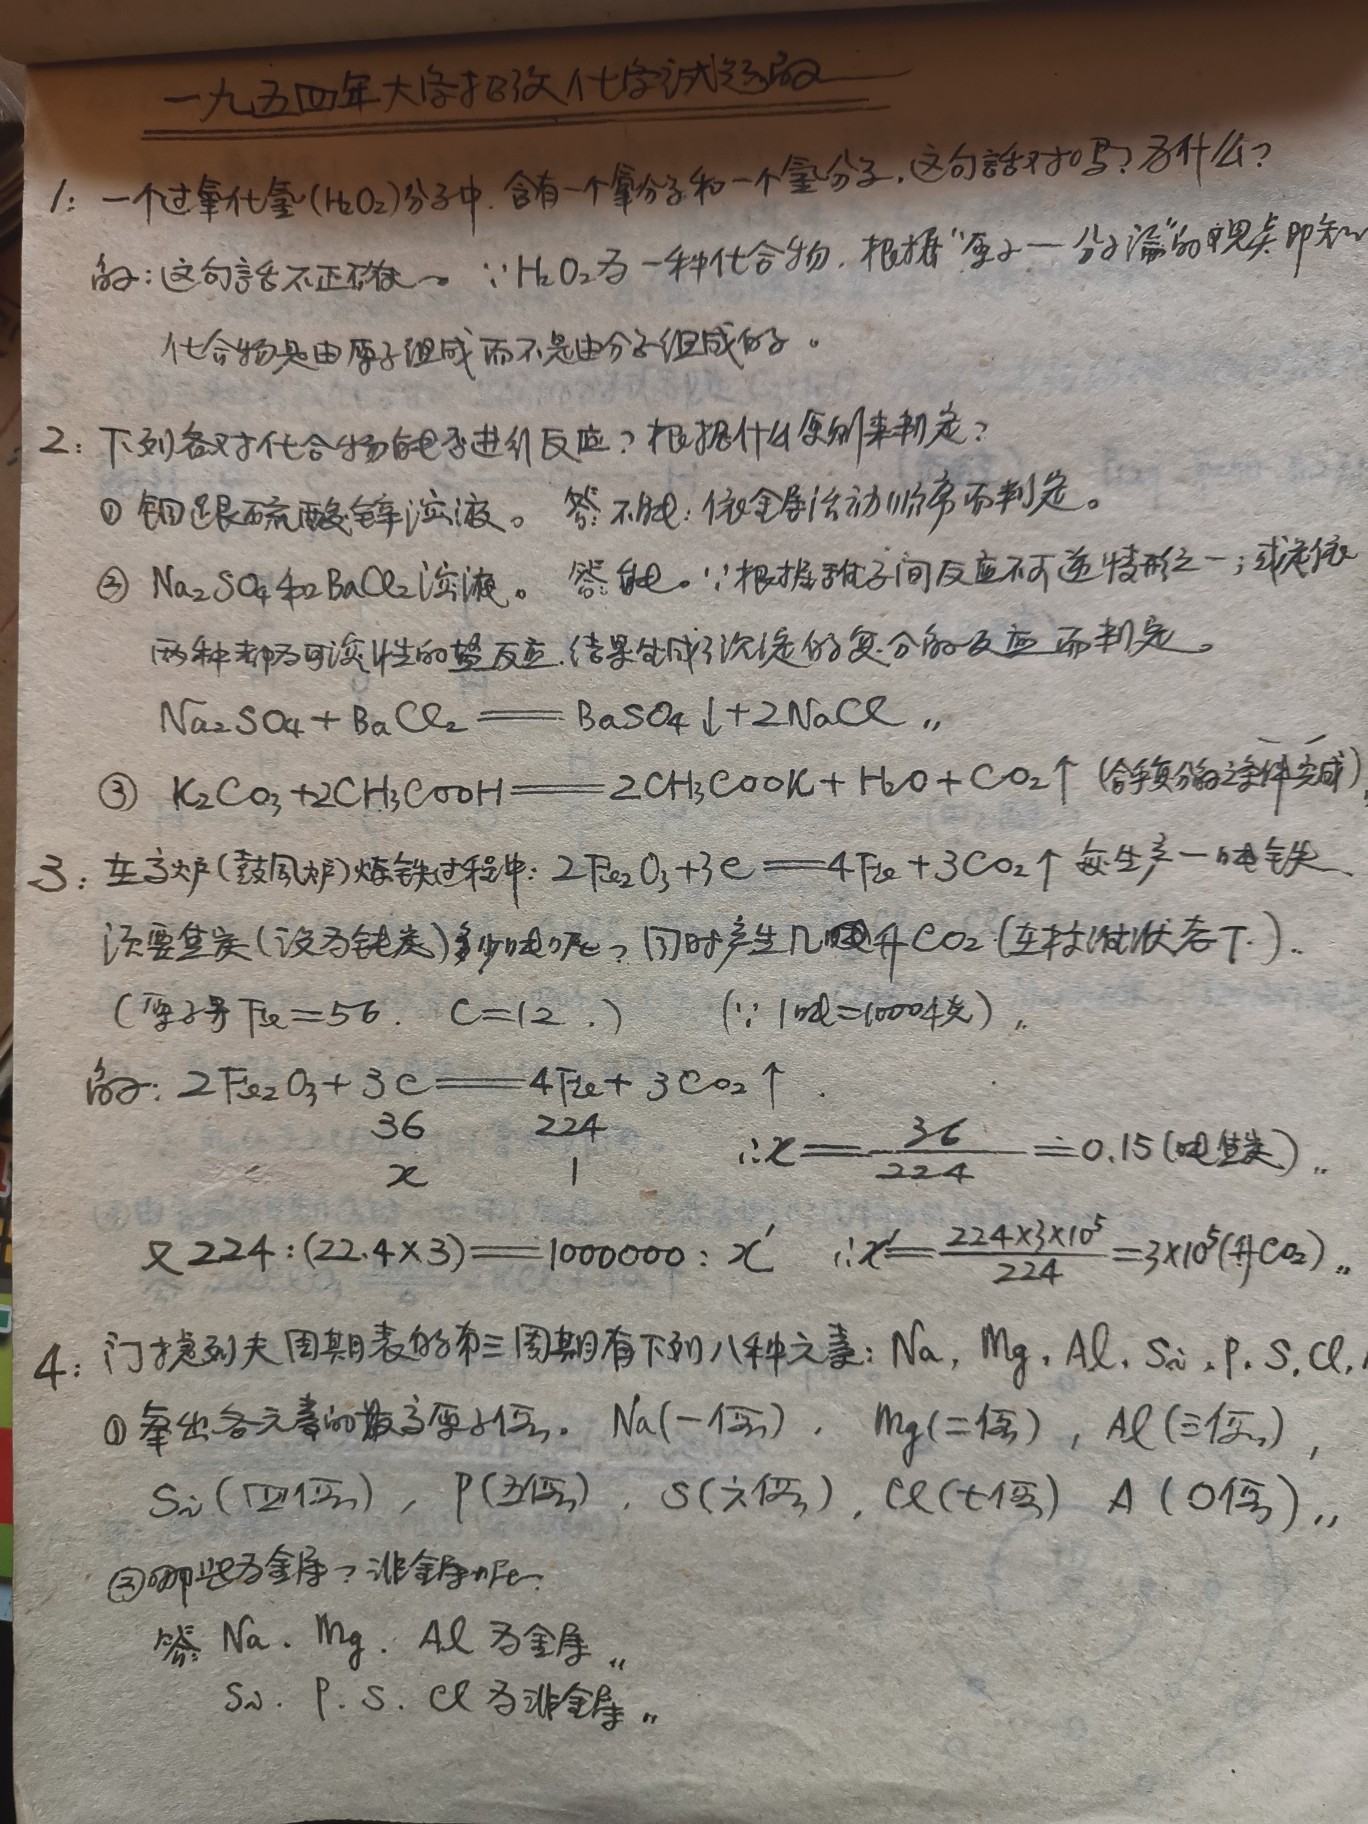 一九五四年大学招考化学试题解
1: 一个过氧化氢(H₂O₂)分子中,含有一个氧分子和一个氢分子,这句話对吗?为什么?
解:这句話不正确。∵H₂O₂为一种化合物,根据“原子—分子論”的观点即知
化合物是由原子组成而不是由分子组成的。
2: 下列各对化合物能否进行反应?根据什么原则来判定?
① 铜跟硫酸锌溶液。 答:不能:依金属活动顺序而判定。
② Na₂SO₄和BaCl₂溶液。 答:能。∵根据离子间反应不可逆情形之一;或是依
两种都为可溶性的盐反应,结果生成了沉淀的复分解反应而判定。
Na₂SO₄+BaCl₂══BaSO₄↓+2NaCl〃
③ K₂CO₃+2CH₃COOH══2CH₃COOK+H₂O+CO₂↑(合乎复分解之条件完成)
3: 在高炉(鼓风炉)炼铁过程中: 2Fe₂O₃+3C══4Fe+3CO₂↑ 每生产一吨铁
须要焦炭(设为纯炭)多少吨呢?同时产生几升CO₂(在标准状态下.)..
(原子量Fe=56. C=12.) (∵1吨=1000仟克)〃
解: 2Fe₂O₃+3C══4Fe+3CO₂↑.
36 224 ∴x══36/224≐0.15(吨焦炭)〃
x 1
又224:(22.4×3)══1000000:x′ ∴x′══224×3×10⁵/224=3×10⁵(升CO₂)〃
4: 门捷列夫周期表的第三周期有下列八种元素: Na, Mg, Al, Si, P, S, Cl,
① 举出各元素的最高原子价。 Na(一价), Mg(二价), Al(三价),
Si(四价), P(五价), S(六价), Cl(七价) A(0价)〃
②哪些为金属?非金属呢?
答: Na. Mg. Al为金属〃
Si. P. S. Cl为非金属〃